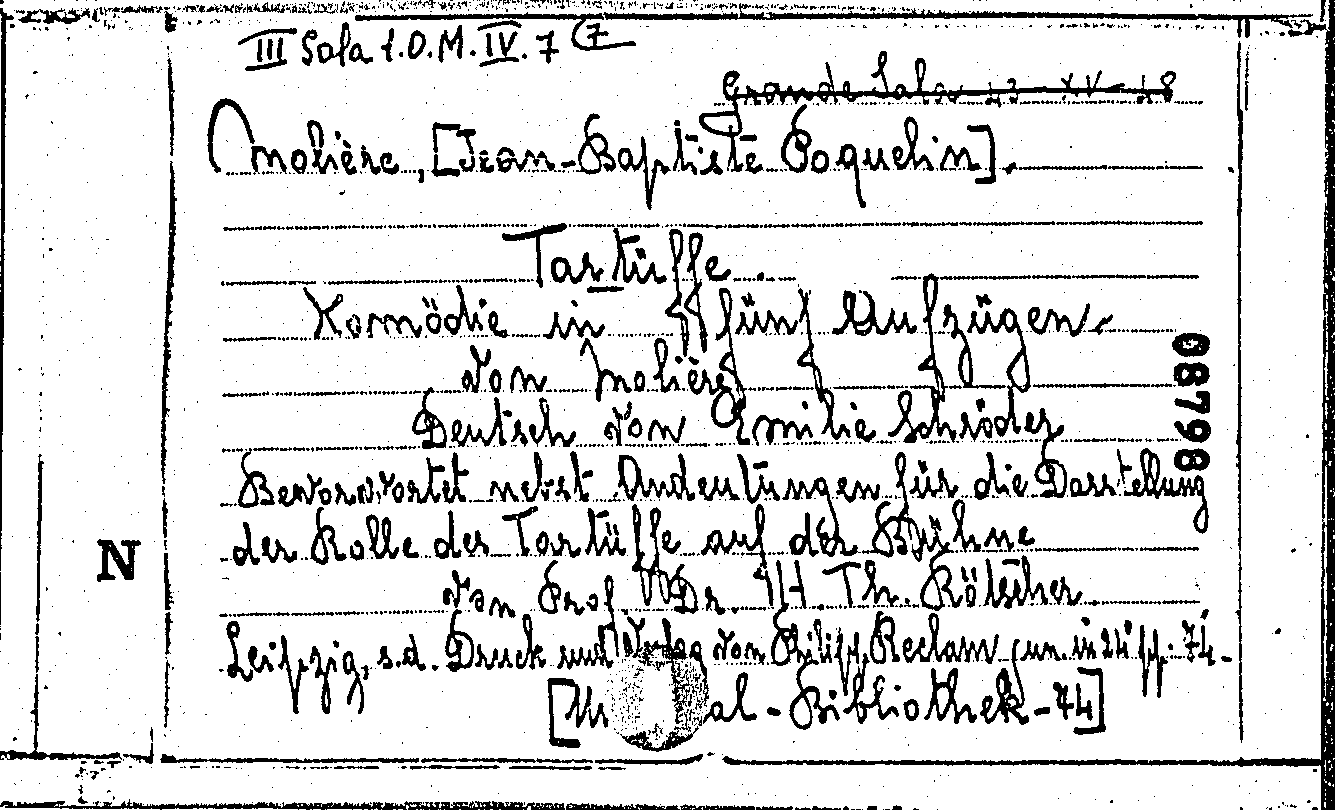 III Sala 1.O.M. IV. 7 (7
Grande Sala 23 XV 48
Molière, [Jean-Baptiste Poquelin].
Tartüffe.
Komödie in fünf Aufzügen.
Von Molière
Deutsch von Emilie Schröder
Bevorwortet nebst Andeutungen für die Darstellung
der Rolle des Tartüffe auf der Bühne
von Prof. Dr. H. Th. Rötscher.
Leipzig, s.d. Druck und Verlag von Philipp Reclam jun. in 24° pp. 74.-
[ al-Bibliothek-74]
08798
N